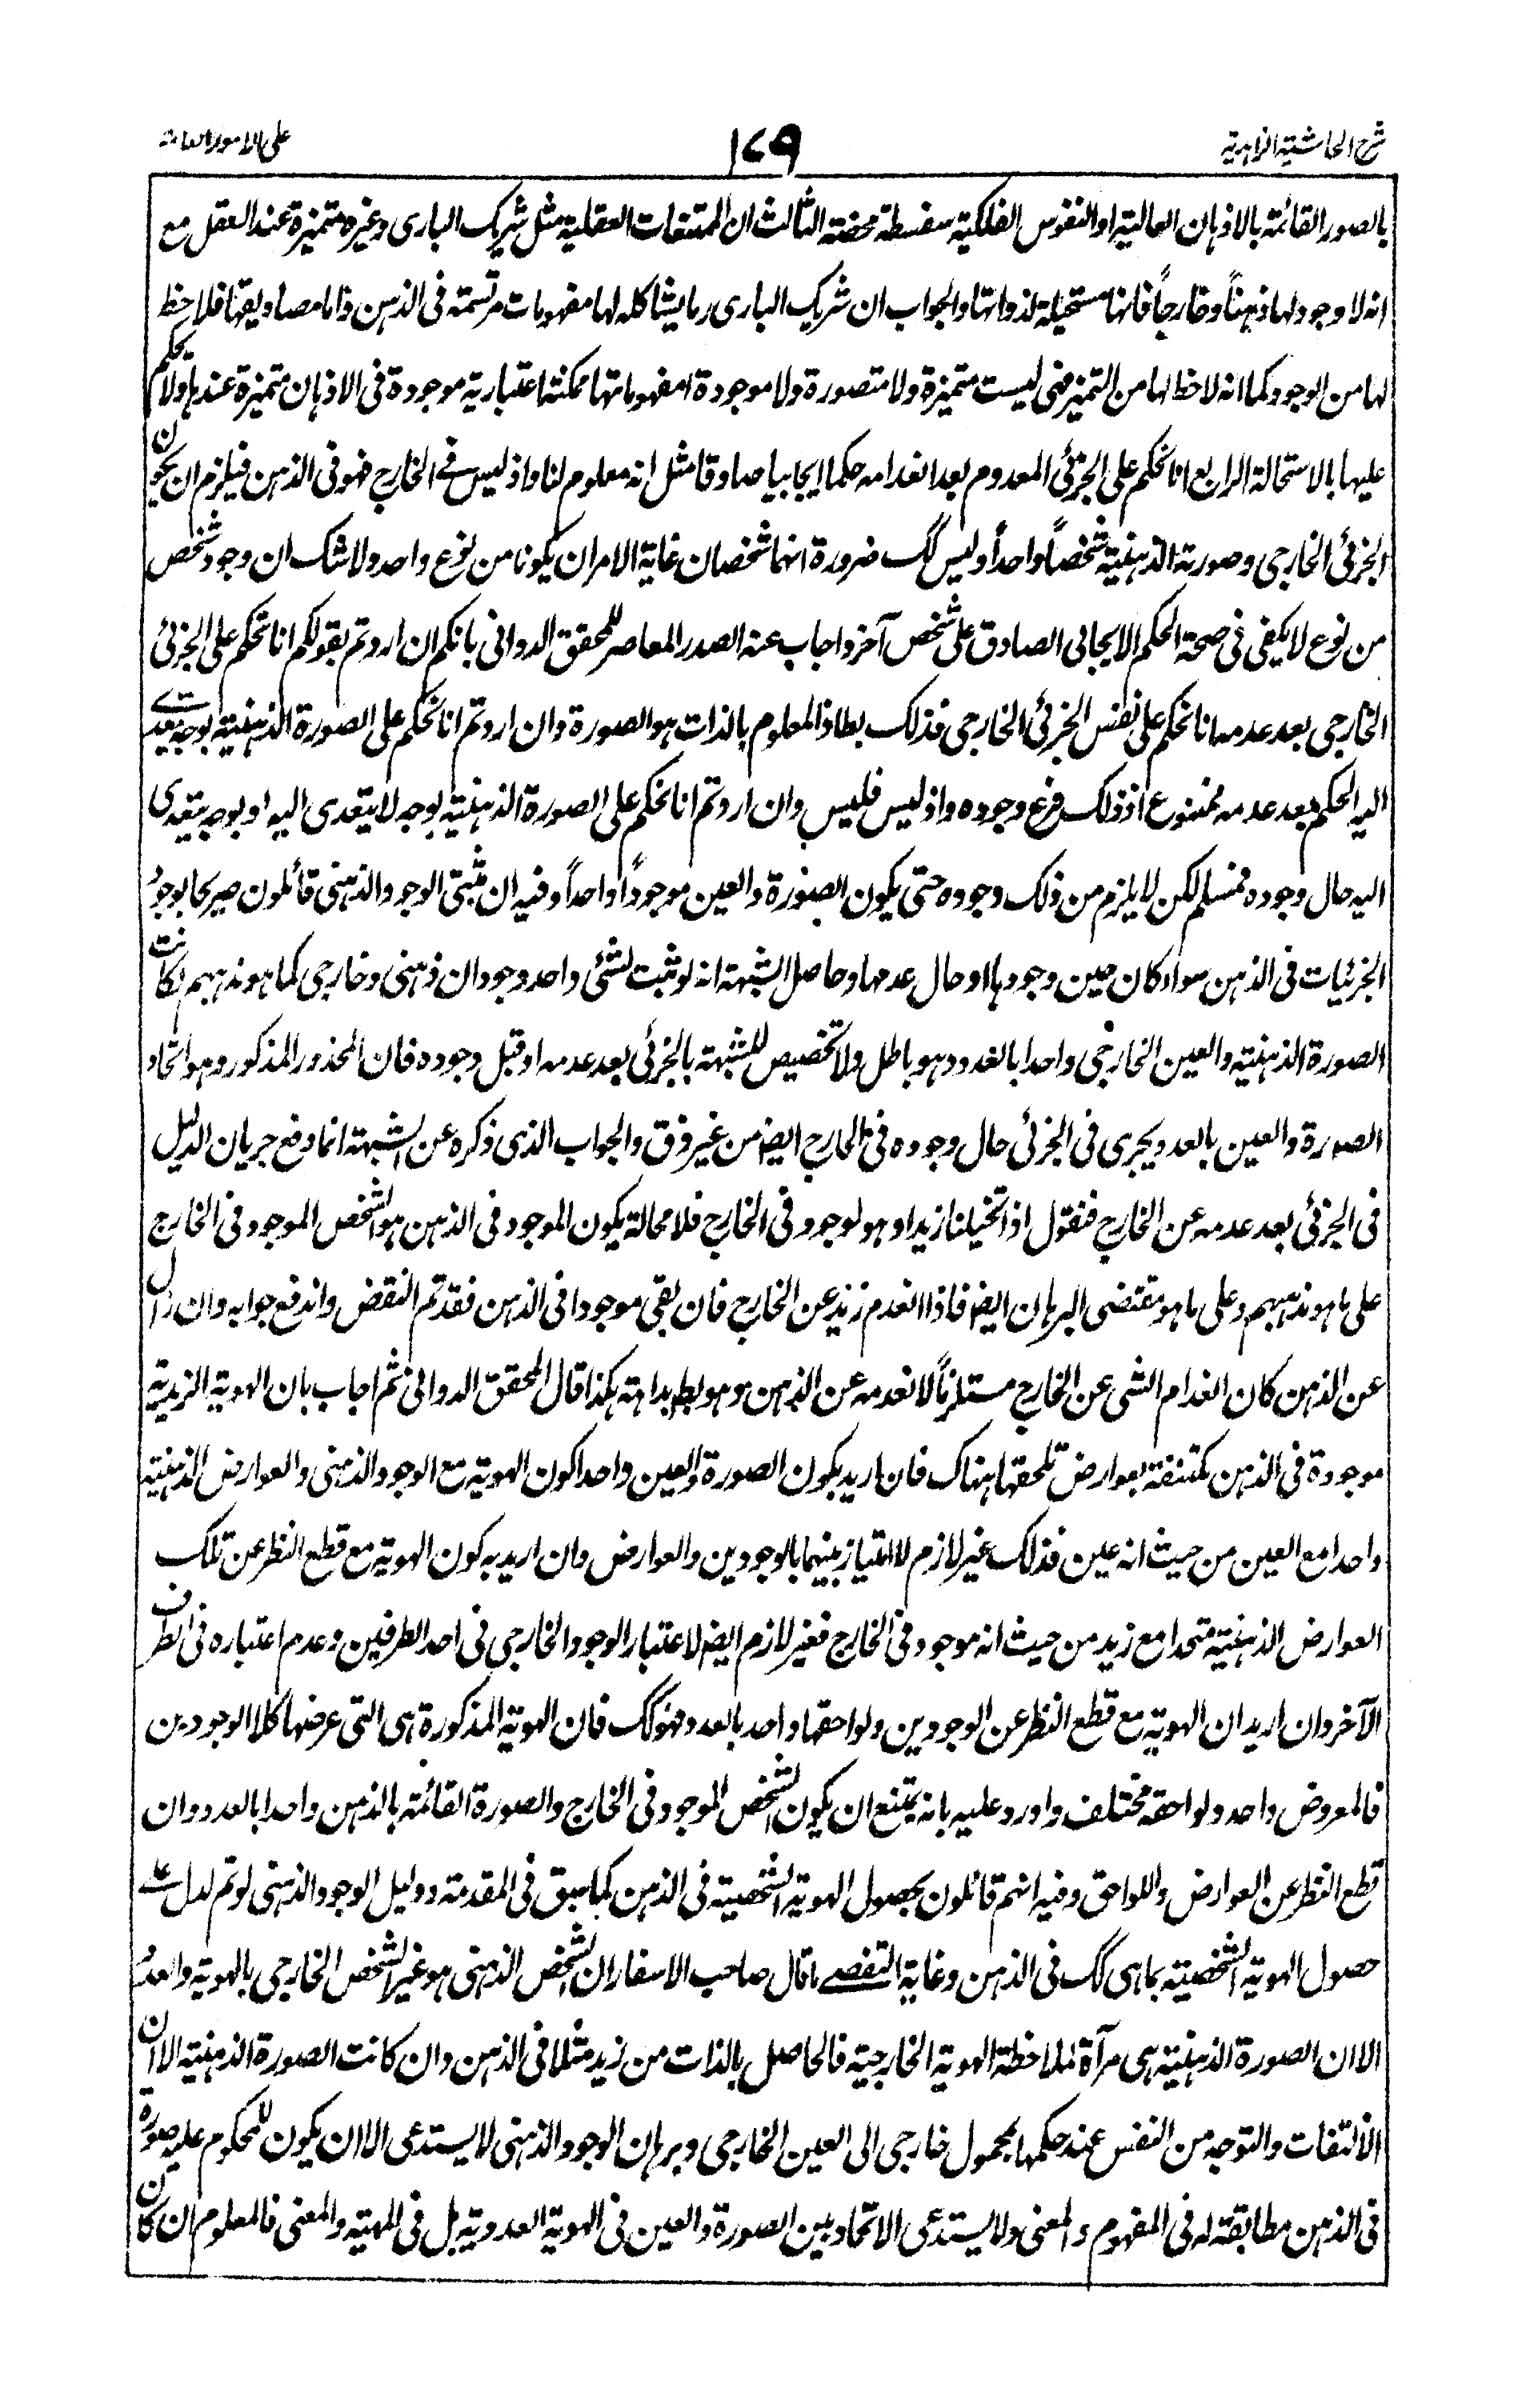 شرح الحاشية الزاهدية
١٧٩
على الامور العامة
بالصور القائمة بالاذهان العالية او النفوس الفلكية سفسطة محضة الثالث ان الممتنعات العقلية مثل شريك البارى وغيره متميزة عند العقل مع
انه لا وجود لها ذهناً وخارجاً فانها مستحيلة لذواتها والجواب ان شريك البارى وما يشاكله لها مفهومات مرتسمة فى الذهن واما مصاديقها فلا حظ
لها من الوجود كما انه لا حظ لها من التميز فهى ليست متميزة ولا متصورة ولا موجودة امفهوماتها ممكنة اعتبارية موجودة فى الاذهان متميزة عندها ولا يحكم
عليها بالاستحالة الرابع انا نحكم على الجزئى المعدوم بعد انعدامه حكما ايجابيا صادقا مثل انه معلوم لنا واذ ليس فى الخارج فهو فى الذهن فيلزم ان يكون
الجزئى الخارجى وصورته الذهنية شخصاً واحداً وليس كك ضرورة انهما شخصان غاية الامر ان يكونا من نوع واحد ولا شك ان وجود شخص
من نوع لا يكفى فى صحة الحكم الايجابى الصادق على شخص آخر واجاب عنه الصدر المعاصر للمحقق الدوانى بانكم ان اردتم بقولكم انا نحكم على الجزئى
الخارجى بعد عدمه انا نحكم على نفس الجزئى الخارجى فذلك بط اذ المعلوم بالذات هو الصورة وان اردتم انا نحكم على الصورة الذهنية بوجه يتعدى
اليه الحكم بعد عدمه فممنوع اذ ذلك فرع وجوده واذ ليس فليس وان اردتم انا نحكم على الصورة الذهنية بوجه لا يتعدى اليه او بوجه يتعدى
اليه حال وجوده فمسلم لكن لا يلزم من ذلك وجوده حتى يكون الصورة والعين موجوداً واحداً وفيه ان مثبتى الوجود الذهنى قائلون صريحا بوجود
الجزئيات فى الذهن سواء كان حين وجودها او حال عدمها وحاصل الشبهة انه لو ثبت لشئ واحد وجودان ذهنى وخارجى كما هو مذهبهم لكانت
الصورة الذهنية والعين الخارجى واحدا بالعدد وهو باطل ولا تخصيص للشبهة بالجزئى بعد عدمه او قبل وجوده فان المحذور المذكور وهو اتحاد
الصورة والعين بالعدد يجرى فى الجزئى حال وجوده فى الخارج ايضا من غير فرق والجواب الذى ذكره عن الشبهة انما دفع جريان الدليل
فى الجزئى بعد عدمه عن الخارج فنقول اذا تخيلنا زيدا وهو موجود فى الخارج فلا محالة يكون الموجود فى الذهن هو الشخص الموجود فى الخارج
على ما هو مذهبهم وعلى ما هو مقتضى البرهان ايضا فاذا انعدم زيد عن الخارج فان بقى موجودا فى الذهن فقد تم النقض واندفع جوابه وان زال
عن الذهن كان انعدام الشئ عن الخارج مستلزماً لانعدمه عن الذهن وهو بط بداهة هكذا قال المحقق الدوانى ثم اجاب بان الهوية الزيدية
موجودة فى الذهن مكتنفة بعوارض تلحقها هناك فان اريد بكون الصورة والعين واحدا كون الهوية مع الوجود الذهنى والعوارض الذهنية
واحدا مع العين من حيث انه عين فذلك غير لازم لامتياز بينهما بالوجودين والعوارض وان اريد به كون الهوية مع قطع النظر عن تلك
العوارض الذهنية متحدا مع زيد من حيث انه موجود فى الخارج فغير لازم ايضا لاعتبار الوجود الخارجى فى احد الطرفين وعدم اعتباره فى الطرف
الآخر وان اريد ان الهوية مع قطع النظر عن الوجودين ولواحقها واحد بالعدد فهو كك فان الهوية المذكورة هى التى عرضها كلا الوجودين
فالمعروض واحد ولواحقه مختلف واورد عليه بانه يمتنع ان يكون الشخص الموجود فى الخارج والصورة القائمة بالذهن واحدا بالعدد وان
قطع النظر عن العوارض واللواحق وفيه انهم قائلون بحصول الهوية الشخصية فى الذهن كما سبق فى المقدمة ودليل الوجود الذهنى لو تم لدل على
حصول الهوية الشخصية بما هى كك فى الذهن وغاية التفصى ما قال صاحب الاسفار ان الشخص الذهنى هو غير الشخص الخارجى بالهوية والعدد
الا ان الصورة الذهنية هى مرآة لملاحظة الهوية الخارجية فالحاصل بالذات من زيد مثلا فى الذهن وان كانت الصورة الذهنية الا ان
الالتفات والتوجه من النفس عند حكمها بمحمول خارجى الى العين الخارجى وبرهان الوجود الذهنى لا يستدعى الا ان يكون للمحكوم عليه صورة
فى الذهن مطابقة له فى المفهوم والمعنى ولا يستدعى الاتحاد بين الصورة والعين فى الهوية العددية بل فى المهية والمعنى فالمعلوم ان كان